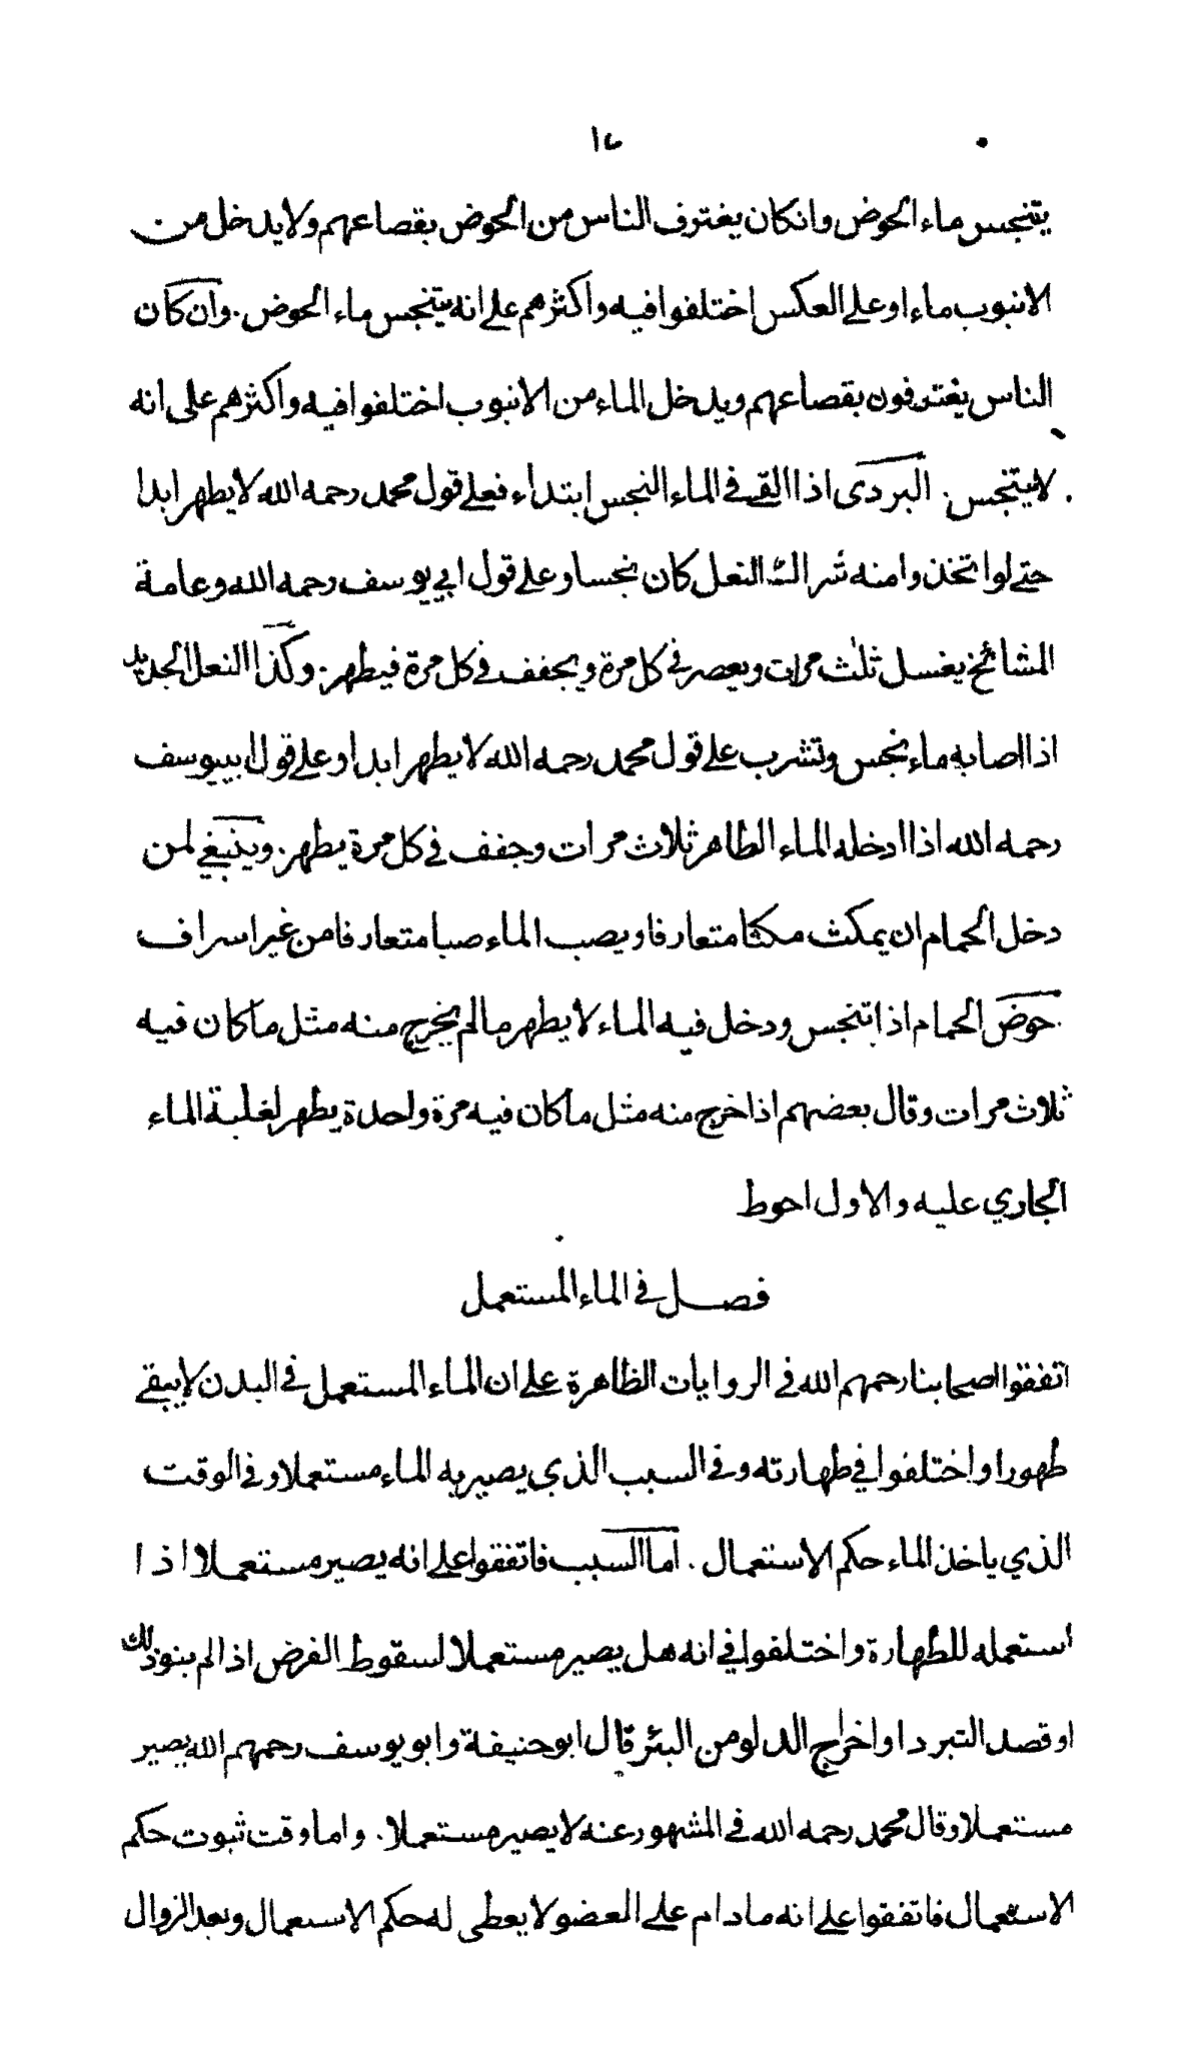 ١٦
يتنجس ماء الحوض وانكان يغترف الناس من الحوض بقصاعهم ولا يدخل من
الانبوب ماء او على العكس اختلفوا فيه واكثرهم على انه يتنجس ماء الحوض. وان كان
الناس يغترفون بقصاعهم ويدخل الماء من الانبوب اختلفوا فيه واكثرهم على انه
لا يتنجس. البردى اذا القي في الماء النجس ابتداء فعلى قول محمد رحمه الله لا يطهر ابدا
حتى لو اتخذوا منه شراك النعل كان نجسا وعلى قول ابي يوسف رحمه الله وعامة
المشائخ يغسل ثلث مرات ويعصر في كل مرة ويجفف في كل مرة فيطهر. وكذا النعل الجديد
اذا اصابه ماء نجس وتشرب على قول محمد رحمه الله لا يطهر ابدا وعلى قول ابي يوسف
رحمه الله اذا ادخله الماء الطاهر ثلاث مرات وجفف في كل مرة يطهر. وينبغي لمن
دخل الحمام ان يمكث مكثا متعارفا ويصب الماء صبا متعارفا من غير اسراف
حوض الحمام اذا تنجس ودخل فيه الماء لا يطهر ما لم يخرج منه مثل ما كان فيه
ثلاث مرات وقال بعضهم اذا خرج منه مثل ما كان فيه مرة واحدة يطهر لغلبة الماء
الجاري عليه والاول احوط
فصل في الماء المستعمل
اتفقوا اصحابنا رحمهم الله في الروايات الظاهرة على ان الماء المستعمل في البدن لا يبقى
طهورا واختلفوا في طهارته وفي السبب الذي يصير به الماء مستعملا وفي الوقت
الذي ياخذ الماء حكم الاستعمال. اما السبب فاتفقوا على انه يصير مستعملا اذا
استعمله للطهارة واختلفوا في انه هل يصير مستعملا لسقوط الفرض اذا لم ينو ذلك
او قصد التبرد او اخراج الدلو من البئر قال ابو حنيفة وابو يوسف رحمهم الله يصير
مستعملا وقال محمد رحمه الله في المشهور عنه لا يصير مستعملا. واما وقت ثبوت حكم
الاستعمال فاتفقوا على انه ما دام على العضو لا يعطى له حكم الاستعمال وبعد الزوال